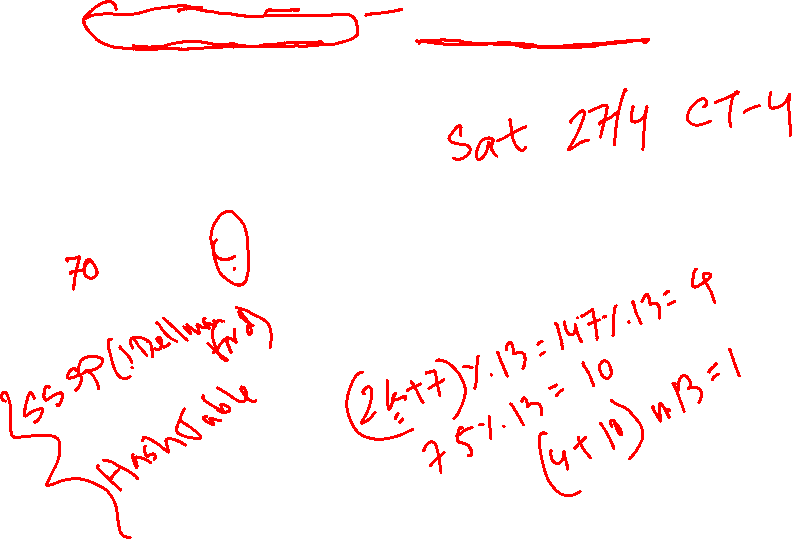 Sat 27/4 CT-4
70
SSSP(!Bellman
ford)
HashTable
(2k+7)%13=147%.13=4
75%.13=10
(4+10)%13=1